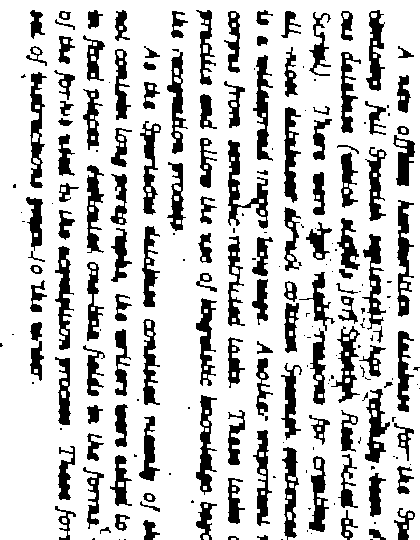 A new offline handwritten database for the Spa
contains full Spanish sentences, has recently been
our database (which stands for Spanish Restricted-do
Sentences). There were two main reasons for creating
all, most databases do not contain Spanish sentences
is a widespread major language. Another important r
corpus from semantic-restricted tasks. These tasks
practice and allow the use of linguistic knowledge beyo
the recognition process.
As the Spartacus database consisted mainly of sh
not contain long paragraphs, the writers were asked to
in fixed places: dedicated one-line fields in the forms.
of the forms used in the acquisition process. These form
set of instructions given to the writer.